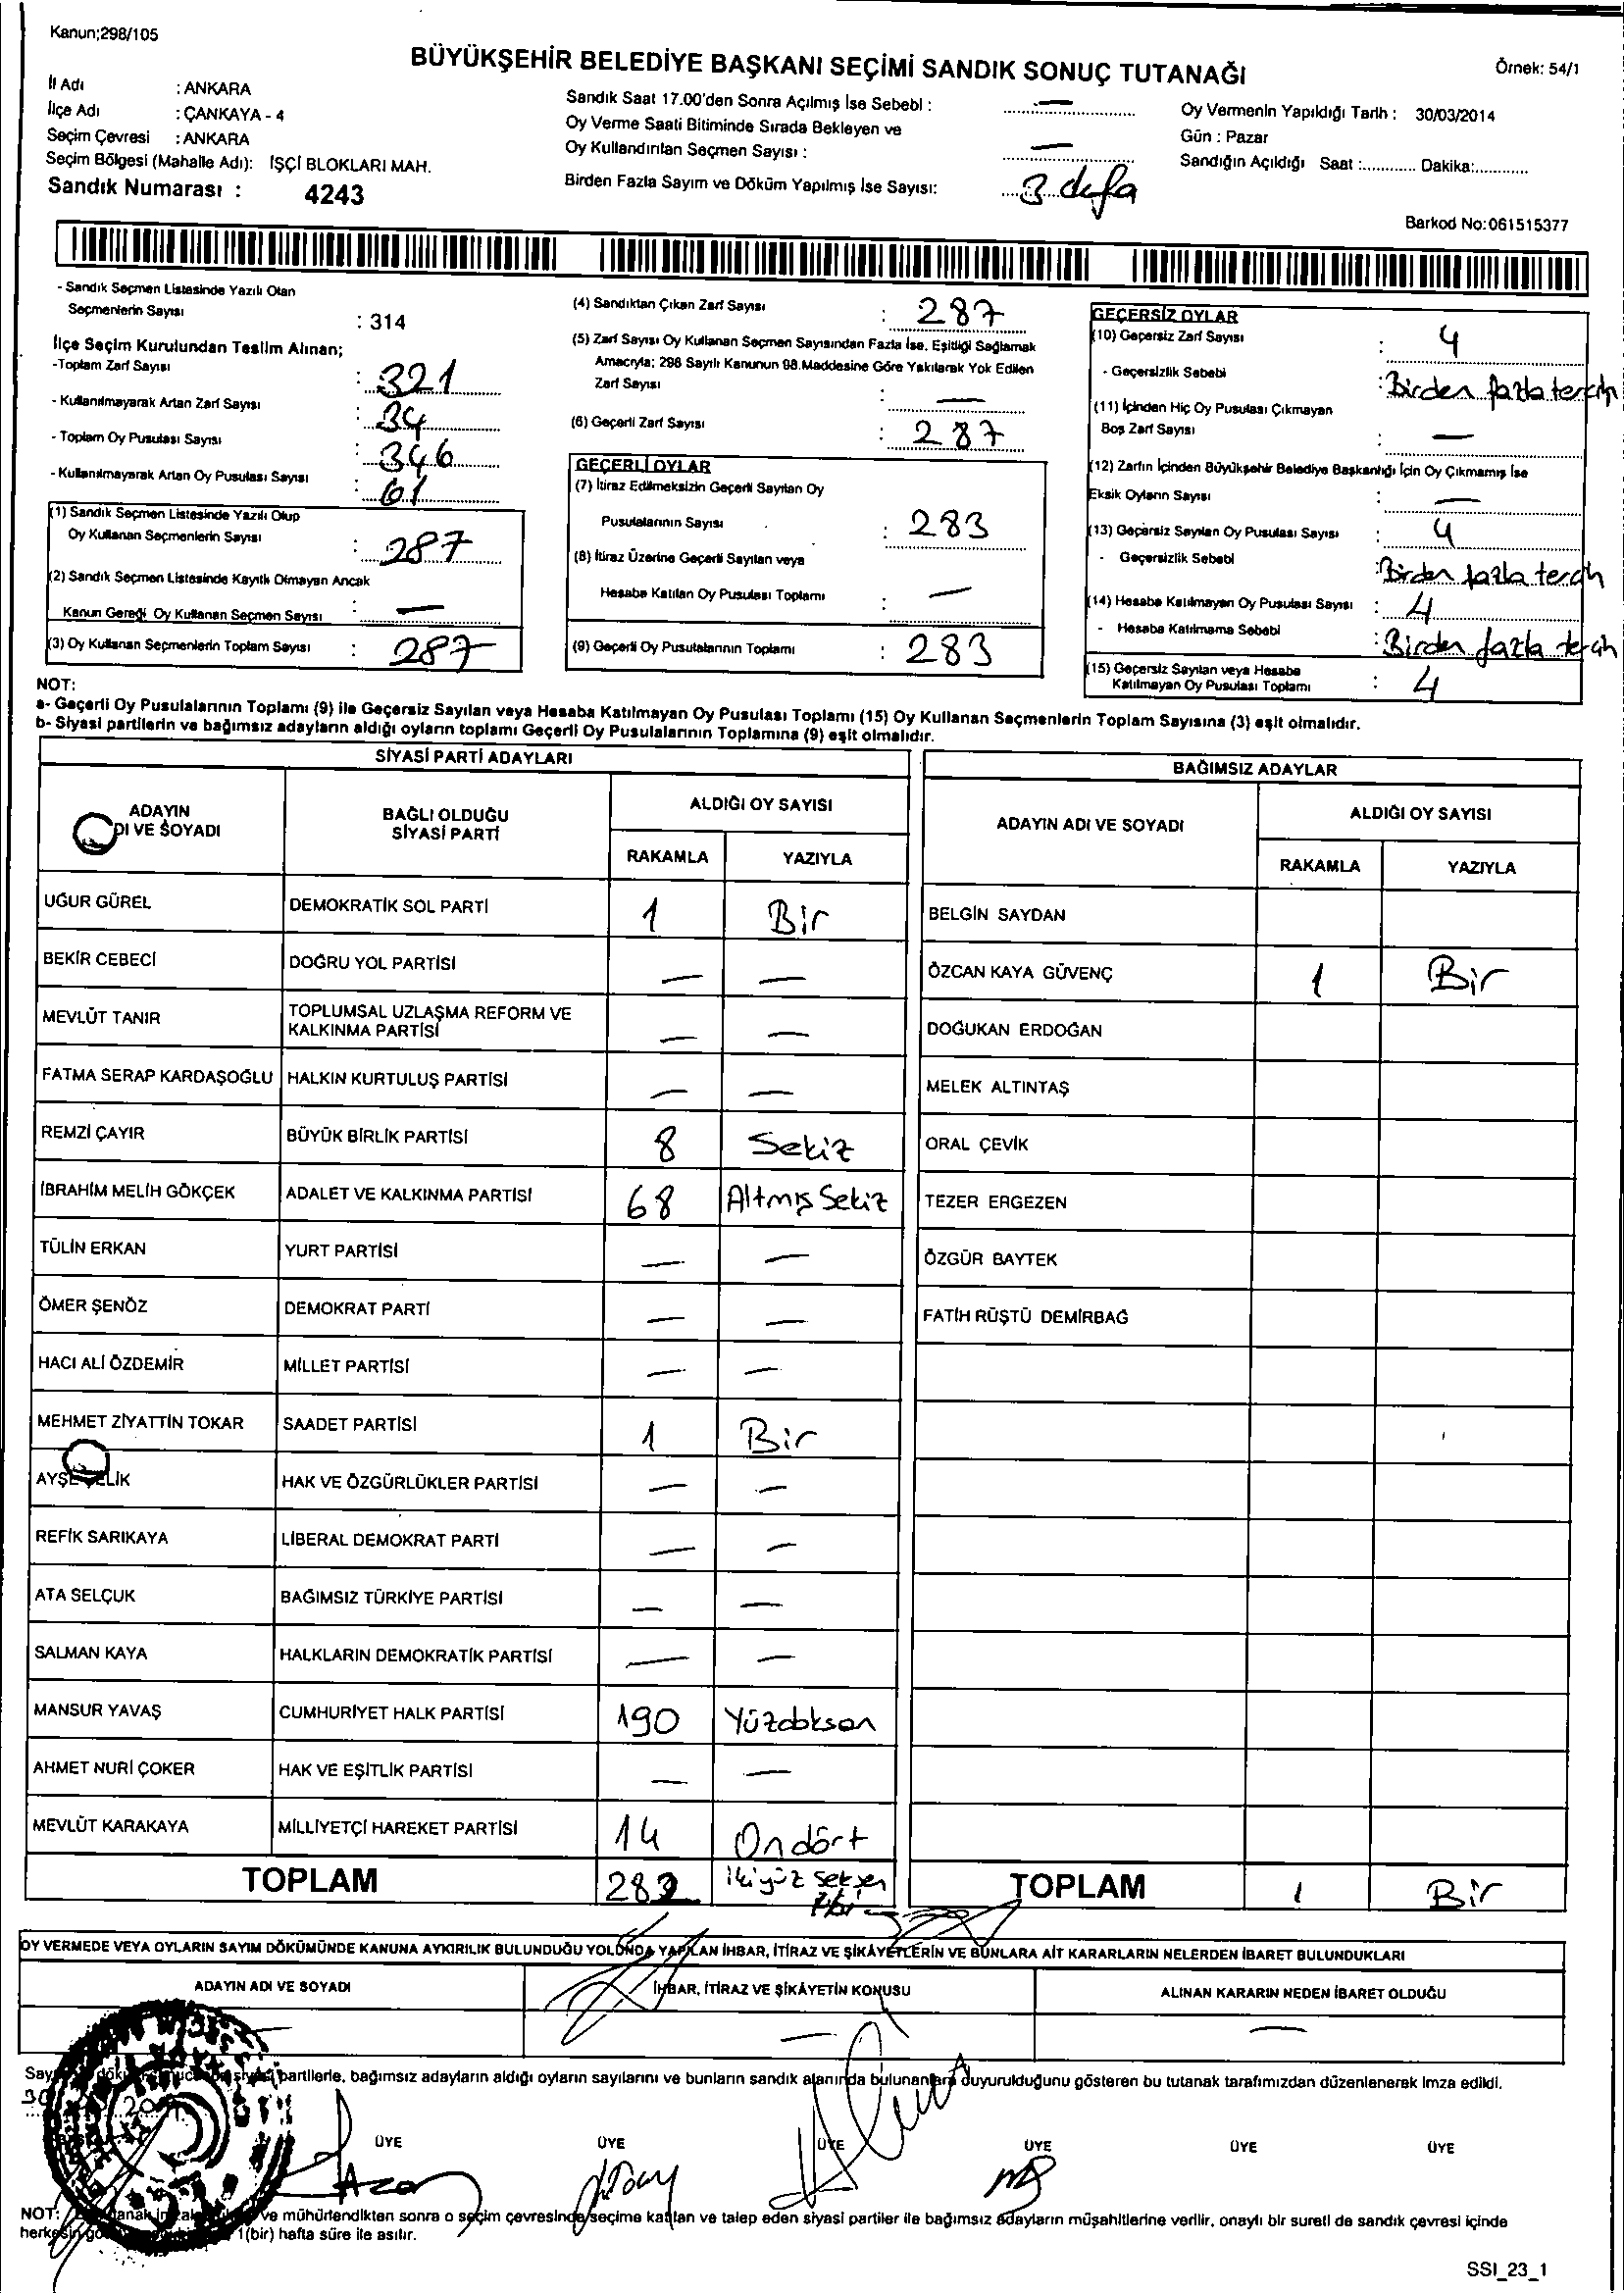 Kanun;298/105
BÜYÜKŞEHİR BELEDİYE BAŞKANI SEÇİMİ SANDIK SONUÇ TUTANAĞI
Örnek: 54/1
İl Adı : ANKARA
İlçe Adı : ÇANKAYA - 4
Seçim Çevresi : ANKARA
Seçim Bölgesi (Mahalle Adı): İŞÇİ BLOKLARI MAH.
Sandık Numarası : 4243
Sandık Saat 17.00'den Sonra Açılmış İse Sebebi : —
Oy Verme Saati Bitiminde Sırada Bekleyen ve
Oy Kullandırılan Seçmen Sayısı : —
Birden Fazla Sayım ve Döküm Yapılmış İse Sayısı: 3 defa
Oy Vermenin Yapıldığı Tarih : 30/03/2014
Gün : Pazar
Sandığın Açıldığı Saat :............. Dakika:.............
Barkod No:061515377
- Sandık Seçmen Listesinde Yazılı Olan
Seçmenlerin Sayısı : 314
İlçe Seçim Kurulundan Teslim Alınan;
-Toplam Zarf Sayısı : 321
- Kullanılmayarak Artan Zarf Sayısı : 34
- Toplam Oy Pusulası Sayısı : 346
- Kullanılmayarak Artan Oy Pusulası Sayısı : 61
(1) Sandık Seçmen Listesinde Yazılı Olup
Oy Kullanan Seçmenlerin Sayısı : 287
(2) Sandık Seçmen Listesinde Kayıtlı Olmayan Ancak
Kanun Gereği Oy Kullanan Seçmen Sayısı : —
(3) Oy Kullanan Seçmenlerin Toplam Sayısı : 287
(4) Sandıktan Çıkan Zarf Sayısı : 287
(5) Zarf Sayısı Oy Kullanan Seçmen Sayısından Fazla İse, Eşitliği Sağlamak
Amacıyla; 298 Sayılı Kanunun 98.Maddesine Göre Yakılarak Yok Edilen
Zarf Sayısı : —
(6) Geçerli Zarf Sayısı : 287
GEÇERLİ OYLAR
(7) İtiraz Edilmeksizin Geçerli Sayılan Oy
Pusulalarının Sayısı : 283
(8) İtiraz Üzerine Geçerli Sayılan veya
Hesaba Katılan Oy Pusulası Toplamı : —
(9) Geçerli Oy Pusulalarının Toplamı : 283
GEÇERSİZ OYLAR
(10) Geçersiz Zarf Sayısı : 4
- Geçersizlik Sebebi : Birden fazla tercih
(11) İçinden Hiç Oy Pusulası Çıkmayan
Boş Zarf Sayısı : —
(12) Zarfın İçinden Büyükşehir Belediye Başkanlığı İçin Oy Çıkmamış İse
Eksik Oyların Sayısı : —
(13) Geçersiz Sayılan Oy Pusulası Sayısı : 4
- Geçersizlik Sebebi : Birden fazla tercih
(14) Hesaba Katılmayan Oy Pusulası Sayısı : 4
- Hesaba Katılmama Sebebi : Birden fazla tercih
(15) Geçersiz Sayılan veya Hesaba
Katılmayan Oy Pusulası Toplamı : 4
NOT:
a- Geçerli Oy Pusulalarının Toplamı (9) ile Geçersiz Sayılan veya Hesaba Katılmayan Oy Pusulası Toplamı (15) Oy Kullanan Seçmenlerin Toplam Sayısına (3) eşit olmalıdır.
b- Siyasi partilerin ve bağımsız adayların aldığı oyların toplamı Geçerli Oy Pusulalarının Toplamına (9) eşit olmalıdır.
SİYASİ PARTİ ADAYLARI
ADAYIN
DI VE SOYADI
BAĞLI OLDUĞU
SİYASİ PARTİ
ALDIĞI OY SAYISI
RAKAMLA YAZIYLA
UĞUR GÜREL DEMOKRATİK SOL PARTİ 1 Bir
BEKİR CEBECİ DOĞRU YOL PARTİSİ — —
MEVLÜT TANIR TOPLUMSAL UZLAŞMA REFORM VE
KALKINMA PARTİSİ — —
FATMA SERAP KARDAŞOĞLU HALKIN KURTULUŞ PARTİSİ — —
REMZİ ÇAYIR BÜYÜK BİRLİK PARTİSİ 8 Sekiz
İBRAHİM MELİH GÖKÇEK ADALET VE KALKINMA PARTİSİ 68 Altmış Sekiz
TÜLİN ERKAN YURT PARTİSİ — —
ÖMER ŞENÖZ DEMOKRAT PARTİ — —
HACI ALİ ÖZDEMİR MİLLET PARTİSİ — —
MEHMET ZİYATTİN TOKAR SAADET PARTİSİ 1 Bir
AYŞE ÇELİK HAK VE ÖZGÜRLÜKLER PARTİSİ — —
REFİK SARIKAYA LİBERAL DEMOKRAT PARTİ — —
ATA SELÇUK BAĞIMSIZ TÜRKİYE PARTİSİ — —
SALMAN KAYA HALKLARIN DEMOKRATİK PARTİSİ — —
MANSUR YAVAŞ CUMHURİYET HALK PARTİSİ 190 Yüzdoksan
AHMET NURİ ÇOKER HAK VE EŞİTLİK PARTİSİ — —
MEVLÜT KARAKAYA MİLLİYETÇİ HAREKET PARTİSİ 14 Ondört
TOPLAM 282 ikiyüz seksen
BAĞIMSIZ ADAYLAR
ADAYIN ADI VE SOYADI
ALDIĞI OY SAYISI
RAKAMLA YAZIYLA
BELGİN SAYDAN
ÖZCAN KAYA GÜVENÇ 1 Bir
DOĞUKAN ERDOĞAN
MELEK ALTINTAŞ
ORAL ÇEVİK
TEZER ERGEZEN
ÖZGÜR BAYTEK
FATİH RÜŞTÜ DEMİRBAĞ
TOPLAM 1 Bir
OY VERMEDE VEYA OYLARIN SAYIM DÖKÜMÜNDE KANUNA AYKIRILIK BULUNDUĞU YOLUNDA YAPILAN İHBAR, İTİRAZ VE ŞİKAYETLERİN VE BUNLARA AİT KARARLARIN NELERDEN İBARET BULUNDUKLARI
ADAYIN ADI VE SOYADI
İHBAR, İTİRAZ VE ŞİKAYETİN KONUSU
ALINAN KARARIN NEDEN İBARET OLDUĞU
— — —
partilerle, bağımsız adayların aldığı oyların sayılarını ve bunların sandık alanında bulunanlara duyurulduğunu gösteren bu tutanak tarafımızdan düzenlenerek imza edildi.
ÜYE ÜYE ÜYE ÜYE ÜYE ÜYE
NOT: ve mühürlendikten sonra o seçim çevresinde seçime katılan ve talep eden siyasi partiler ile bağımsız adayların müşahitlerine verilir, onaylı bir sureti de sandık çevresi içinde
1(bir) hafta süre ile asılır.
SSI_23_1